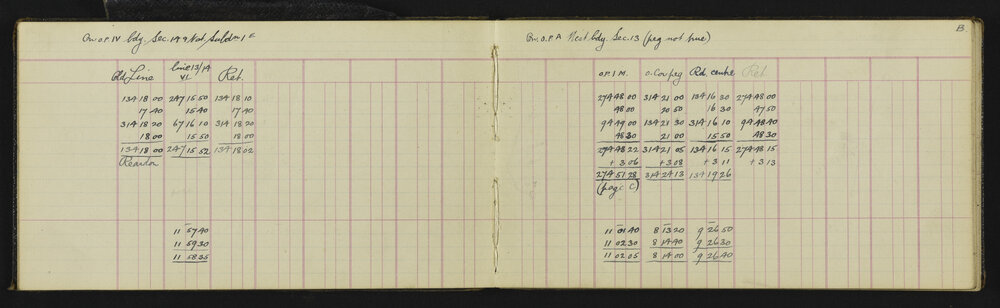 Old Line line 13/14 Ret.
VI
134 18 00 247 15 50 134 18 10
17 40 15 40 17 40
314 18 20 67 16 10 314 18 20
18 00 15 50 18 00
134 18 00 247 15 52 134 18 02
Reardon
11 57 40
11 59 30
11 58 35
B.
On O.P.A Nect bdy Sec. 13 (peg not true)
O.P.I M. O. Cor peg Rd. centre Ret
274 48 00 314 21 00 134 16 30 274 48 00
48 00 20 50 16 30 47 50
94 49 00 134 21 30 314 16 10 94 48 40
48 30 21 00 15 50 48 30
274 48 22 314 21 05 134 16 15 274 48 15
+ 3 06 + 3 08 + 3 11 + 3 13
274 51 28 314 24 13 134 19 26
(page C)
11 01 40 8 13 20 9 26 50
11 02 30 8 14 40 9 26 30
11 02 05 8 14 00 9 26 40